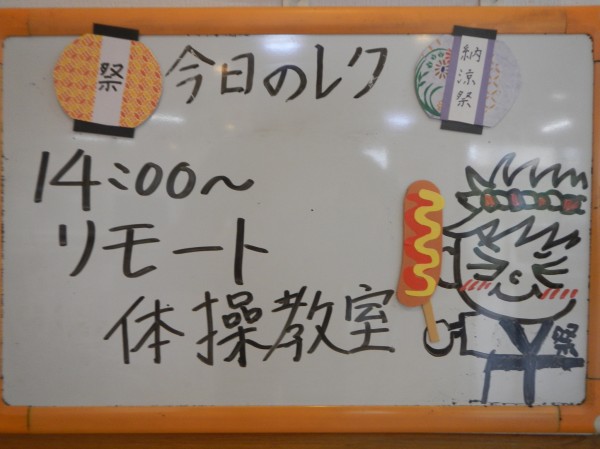 祭
今日のレク
納涼祭
14:00～
リモート
体操教室
祭